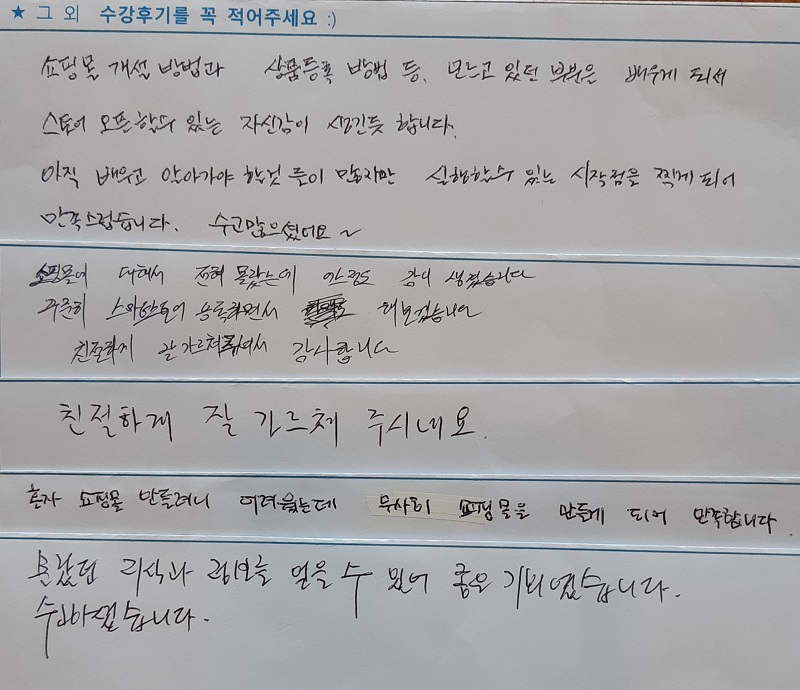 ★ 그 외 수강후기를 꼭 적어주세요 :)
쇼핑몰 개설 방법과 상품등록 방법 등, 모르고 있던 부분은 배우게 되서
스토어 오픈할수 있는 자신감이 생긴듯 합니다.
아직 배우고 알아가야 할것 들이 많지만 실행할수 있는 시작점을 찍게 되어
만족스럽습니다. 수고많으셨어요~
쇼핑몰에 대해서 전혀 몰랐는데 어느정도 감이 생겼습니다
꾸준히 스마트스토어 등록하면서 해보겠습니다
친절하게 잘 가르쳐주셔서 감사합니다
친절하게 잘 가르쳐 주시네요.
혼자 쇼핑몰 만들려니 어려웠는데 무사히 쇼핑몰을 만들게 되어 만족합니다.
몰랐던 지식과 정보를 얻을 수 있어 좋은 기회였습니다.
수고하셨습니다.